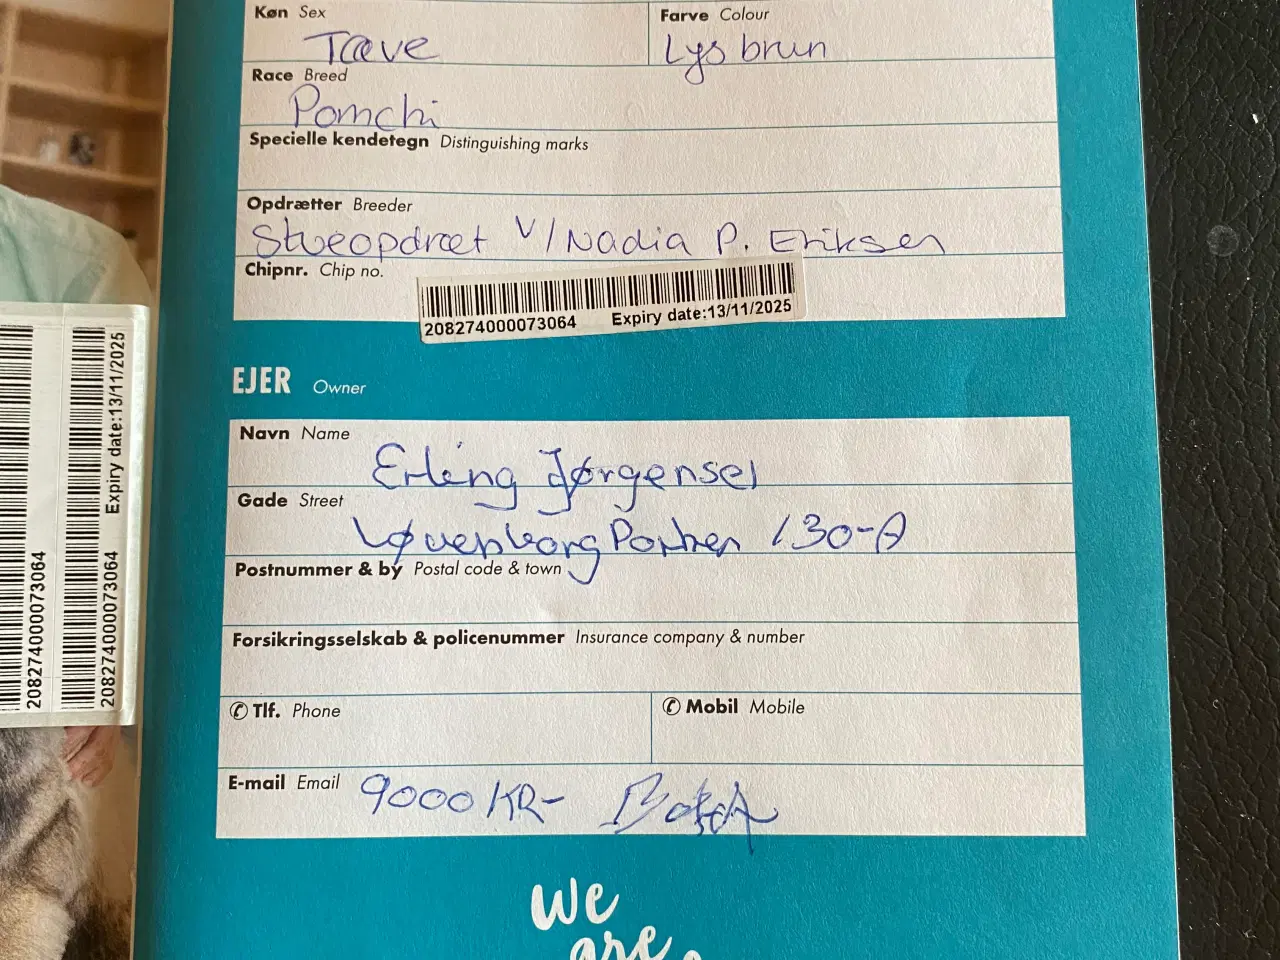 Køn Sex
Tæve
Farve Colour
Lys brun
Race Breed
Pomchi
Specielle kendetegn Distinguishing marks
Opdrætter Breeder
Stueopdræt V/ Nadia P. Eriksen
Chipnr. Chip no.
208274000073064 Expiry date:13/11/2025
EJER Owner
Navn Name
Erling Jørgensen
Gade Street
130-A
Postnummer & by Postal code & town
Forsikringsselskab & policenummer Insurance company & number
✆ Tlf. Phone
✆ Mobil Mobile
E-mail Email
9000 KR-
we
are
208274000073064
208274000073064 Expiry date:13/11/2025